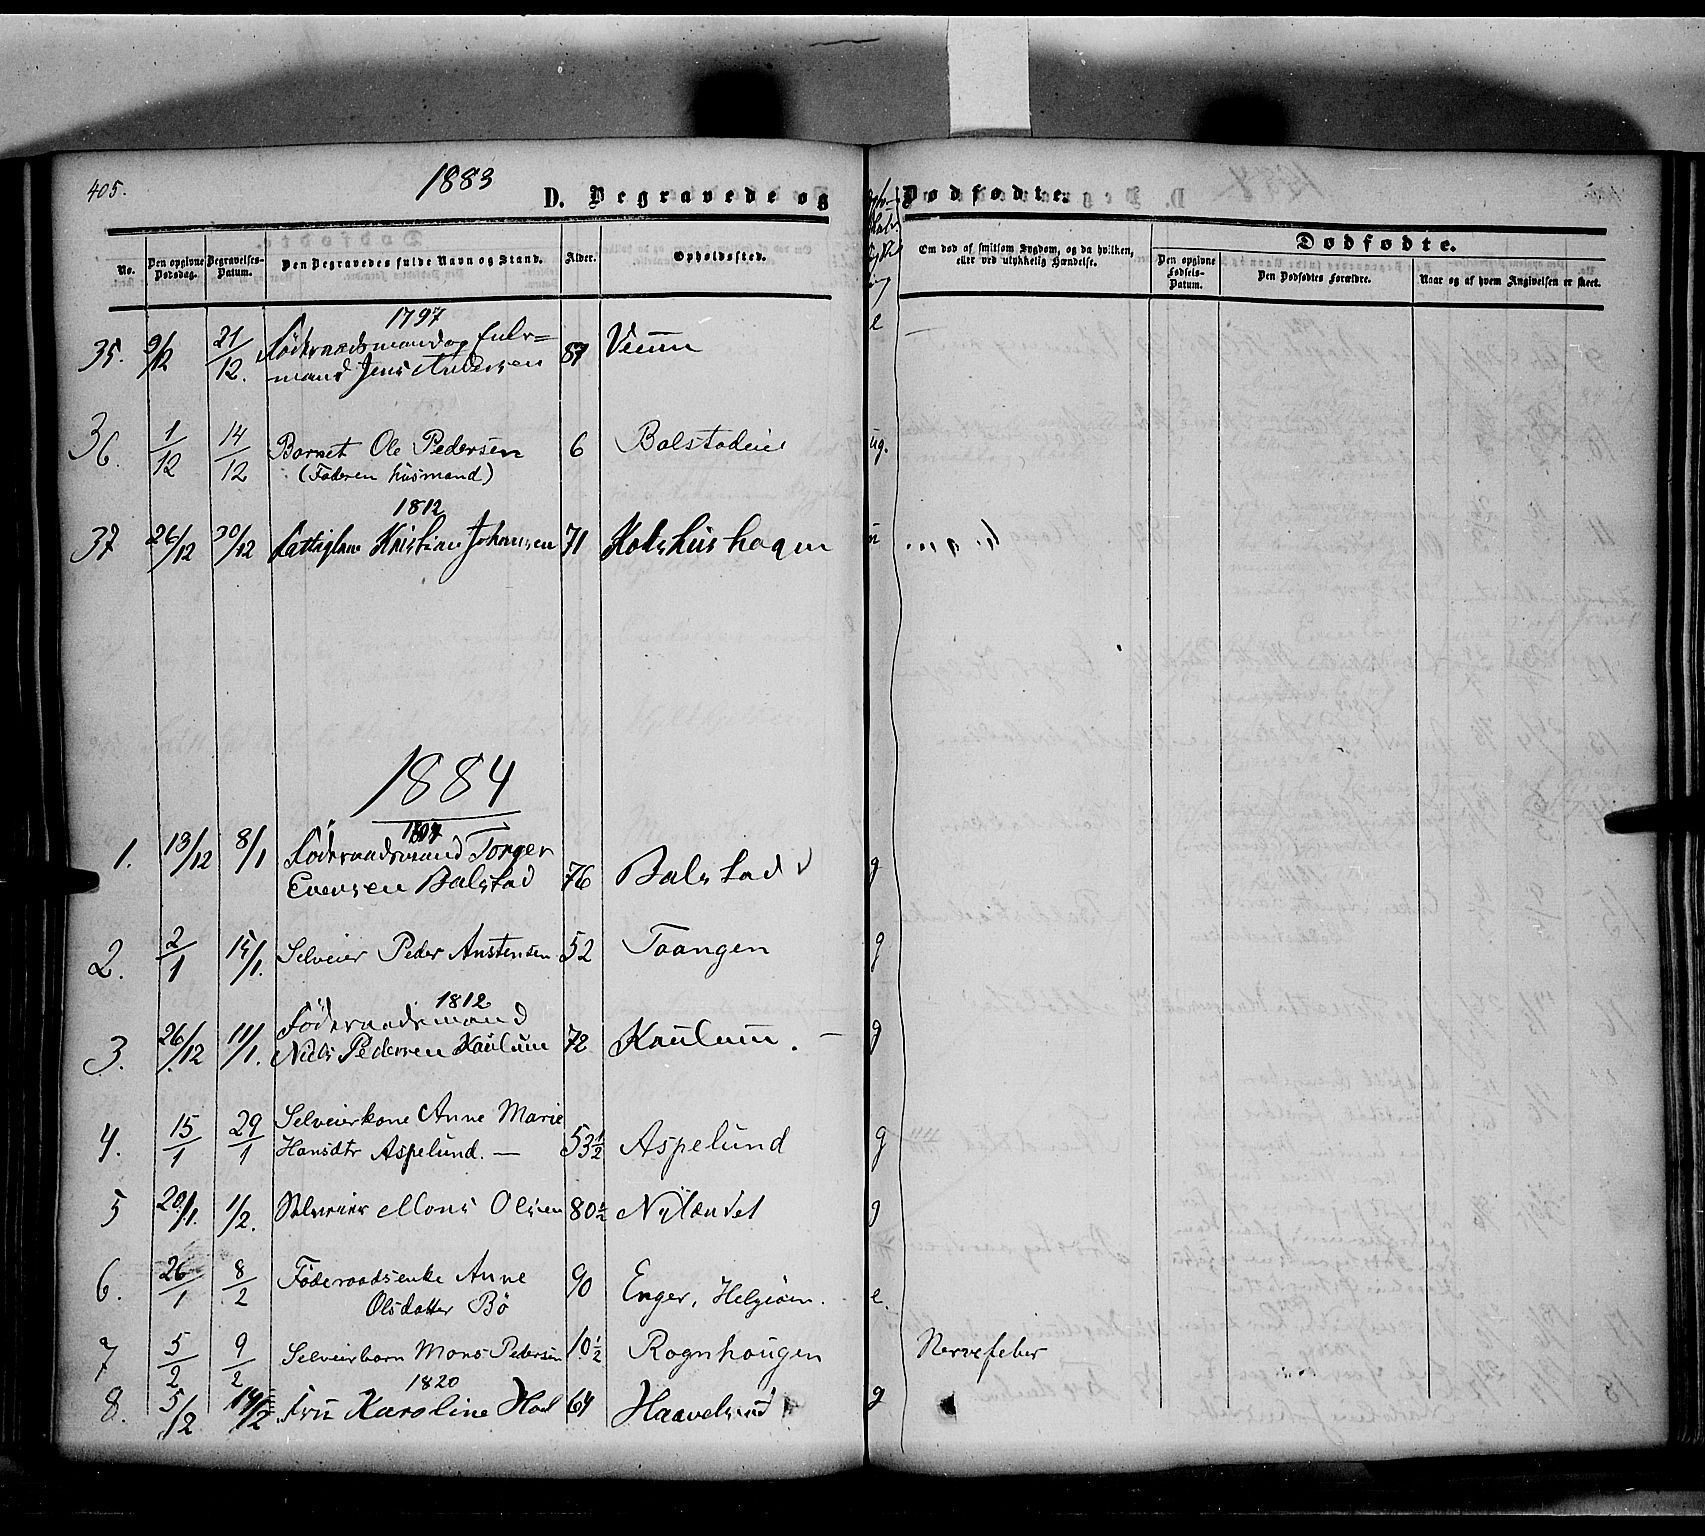 405.
1883
D. Begravede og Dødfødte.
No.
Den opgivne Dødsdag.
Begravelses-Datum.
Den Begravedes fulde Navn og Stand.
Alder.
Opholdssted.
Om død af smitsom Sygdom, og da hvilken,
eller ved ulykkelig Hændelse.
Dødfødte.
Den opgivne Fødsels-Datum.
Den Dødfødtes Forældre.
Naar og af hvem Angivelsen er skeet.
1797
35. 9/12 21/12. Föderaadsmand og Enke-
mand Jens Andersen 87 e —
36. 1/12 14/12 Barnet Ole Pedersen 6 Balstadeie ug.
(Faderen husmand)
1812
37 26/12 30/12 Kristian Johansen 71
1884
1807
1. 13/12 8/1 Föderaadsmand Torger
Evensen Balstad 76 Balstad g
2. 2/1 15/1. Selveier Peder Anstensen 52 Taangen g
1812
Föderaadsmand
3. 26/12 11/1. Niels Pedersen Kaulum 72 Kaulum. — g
4. 15/1 29/1 Selveierkone Anne Marie
Hansdtr Aspelund. — 53 1/2 Aspelund g
5 20/1. 1/2. Selveier Mons Olsen 80 1/2 Nylændet g
6. 26/1 8/2 Föderaadsenke Anne 90 Enger, Helgöen. e.
Olsdatter Bö
7 5/2 9/2 Selveierbarn Mons Pedersen 10 1/2 Rognhaugen Nervefeber
1820
8. 5/2 14/2 Fru Karoline Hoel 64 Haavelsrud g